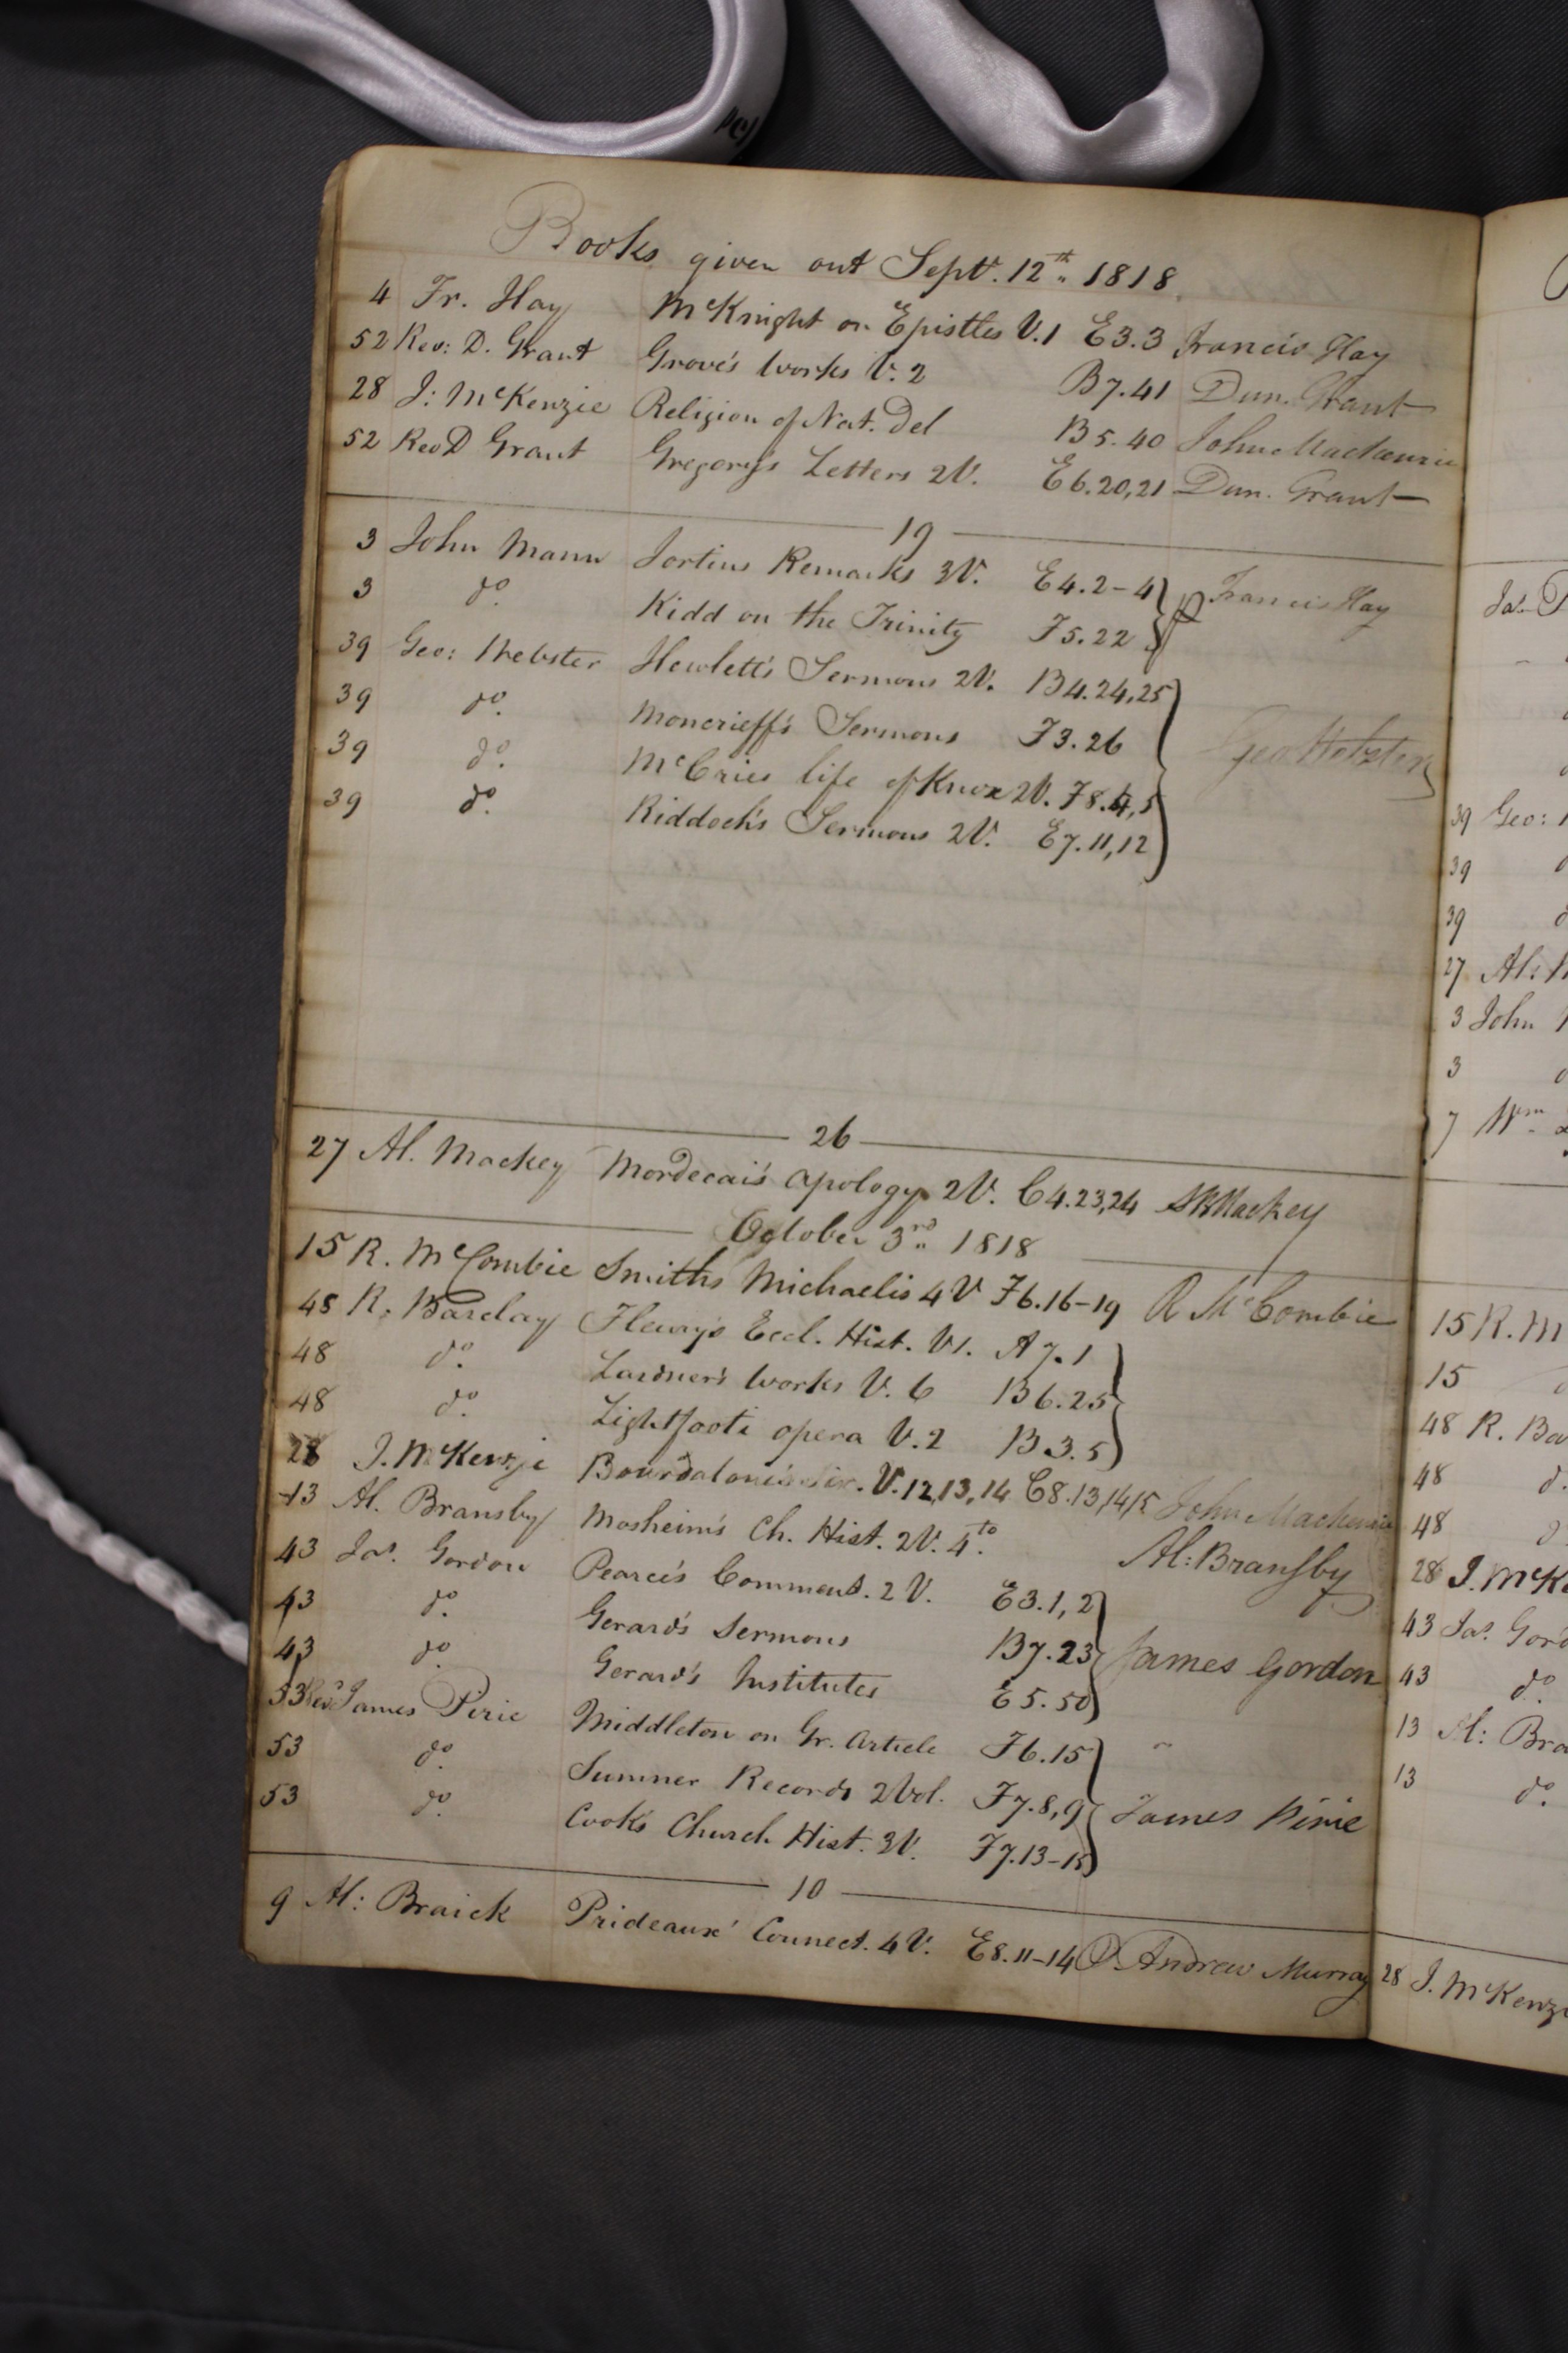 Books given out Sept. 12th 1818.
4 Fr. Hay McKnight on Epistles V.1 E3.3 Francis Hay
52 Rev: D. Grant Grove's Works V.2 B7.41 Dun. Grant
28 J: McKenzie Religion of Nat. Del B5.40 John Mackenzie
52 Rev D Grant Gregory's Letters 2V. E6.20,21 Dun. Grant
19
3 John Mann Jortins Remarks 3V. E4.2-4
3 do. Kidd on the Trinity F5.22 p Francis Hay
39 Geo: Webster Hewlett's Sermons 2V. B4.24,25
39 do. Moncrieff's Sermons F3.26 Geo Webster
39 do. McCries life of Knox 2V. F8.4,5
39 do. Riddoch's Sermons 2V. E7.11,12
26
27 Al. Mackey Mordecai's Apology 2V. C4.23,24 Mackey
October 3rd 1818
15 R. McCombie Smiths Michaelis 4V F6.16-19 R McCombie
48 R. Barclay Fleury's Eccl. Hist. V1. A7.1
48 do. Lardner's Works V.6 B6.25
48 do. Lightfooti opera V.2 B3.5
28 J. McKenzie Bourdaloue's V.12,13,14 C8.13,14,15 John Mackenzie
13 Al. Bransby Mosheim's Ch. Hist. 2V. 4to. Al: Bransby
43 Jas. Gordon Pearce's Comment. 2V. E3.1,2
43 do. Gerard's Sermons B7.23 James Gordon
43 do. Gerard's Institutes E5.50
53 Revd James Pirie Middleton on Gr. Article F6.15
53 do. Sumner Records 2Vol. F7.8,9 James Pirie
53 do. Cook's Church Hist. 3V. F7.13-15
10
9 Al: Braick Prideaux' Connect. 4V. E8.11-14 p. Andrew Murray
39 Geo:
39
39
27 Al:
3 John
3
7 Wm
15 R. M
15
48 R. Ba
48 do.
48
28 J. McK
43 Jas. Gord
43 do.
13 Al: Bra
13 do.
28 J. McKenzi